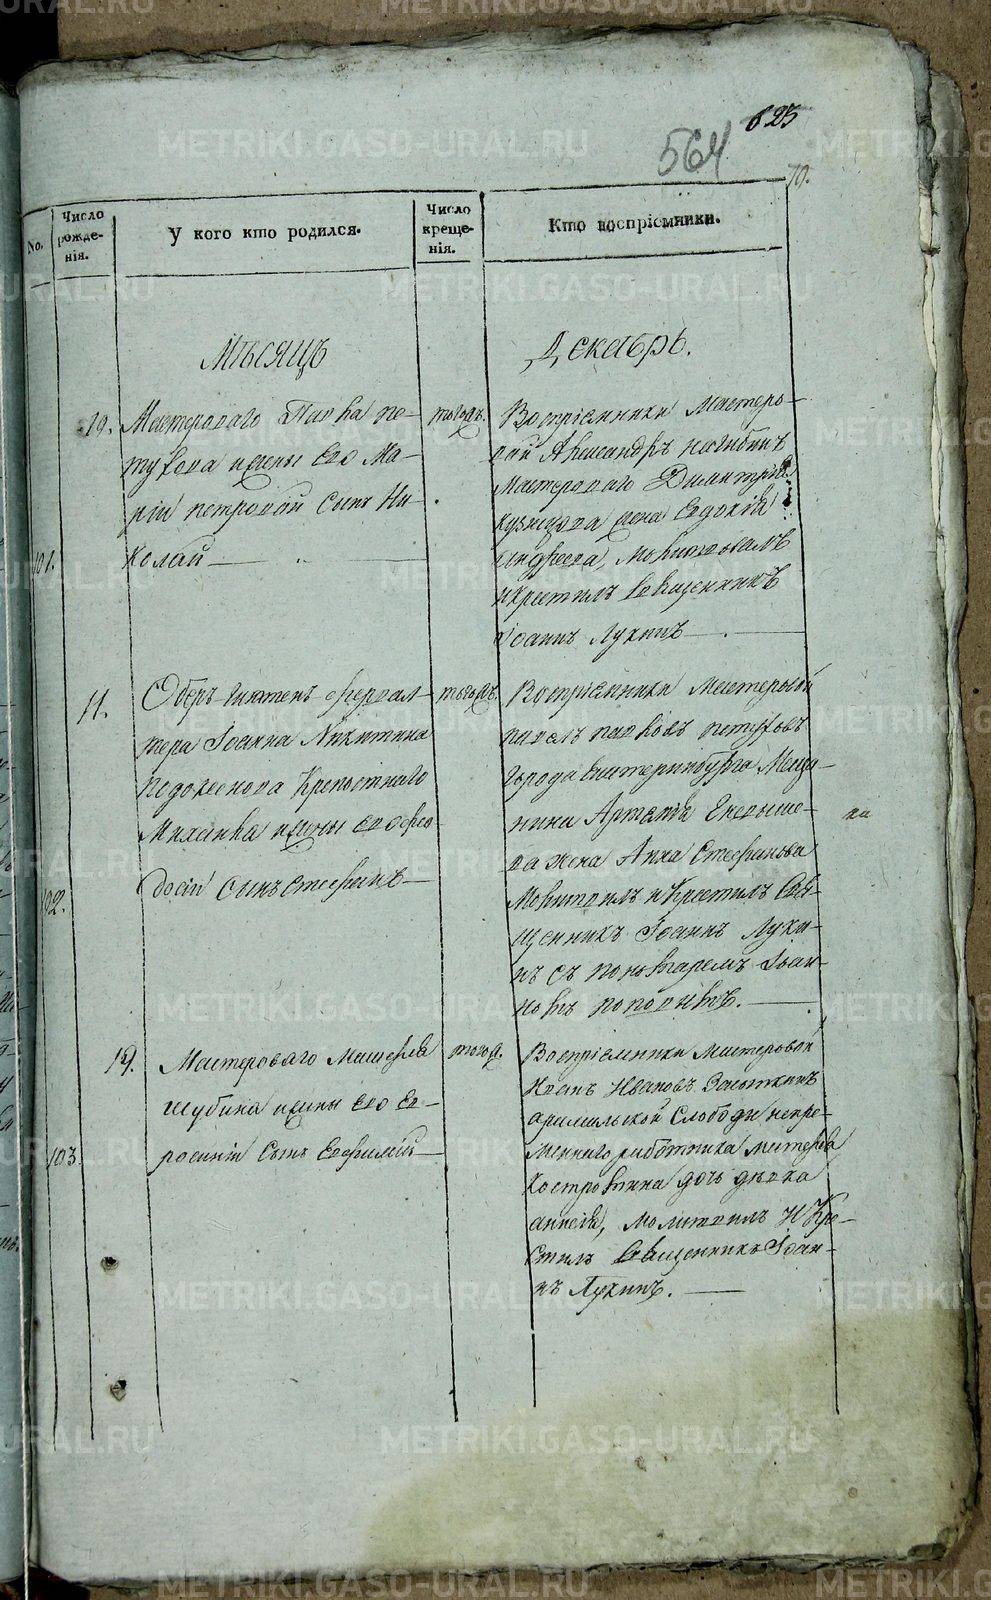 623
564
70.
No.
Число рожденія.
У кого кто родился.
Число крещенія.
Кто воспріемники.
Мѣсяцъ
Декабрь.
101.
19.
Мастероваго Павла пе-
тухова ижены его Ма-
ріи петровой сынъ Ни-
колай
тогожъ.
Воспріемники мастеро-
вой Александръ
Мастероваго Димитрія
кузнецова жена Евдокія
андреева, Молитвовалъ
и крестилъ священникъ
Іоаннъ Лукинъ
102.
11.
Оберъ
Іоанна Никитина
Крепостнаго
Михаила ижены его Фео-
досіи сынъ Стефанъ
тогожъ.
Воспріемники Мастеровой
павелъ павловъ петуховъ
города екатеринбурга Меща-
нина Артемія
ва жена Анна Стефанова
Молитвилъ и Крестилъ Свя-
щенникъ Іоаннъ Луки-
нъ съ пономаремъ Іоан-
номъ поповымъ.
103
19.
Мастероваго
шубина ижены его Ев-
росиніи сынъ Евфимій
тогож.
Воспріемники Мастеровой
Иванъ Ивановъ
арамильской Слободы непре-
меннаго работника матвея
костромина дочь девка
анисія, молитвилъ и Кре-
стилъ Священникъ Іоан-
нъ Лукинъ.
METRIKI.GASO-URAL.RU